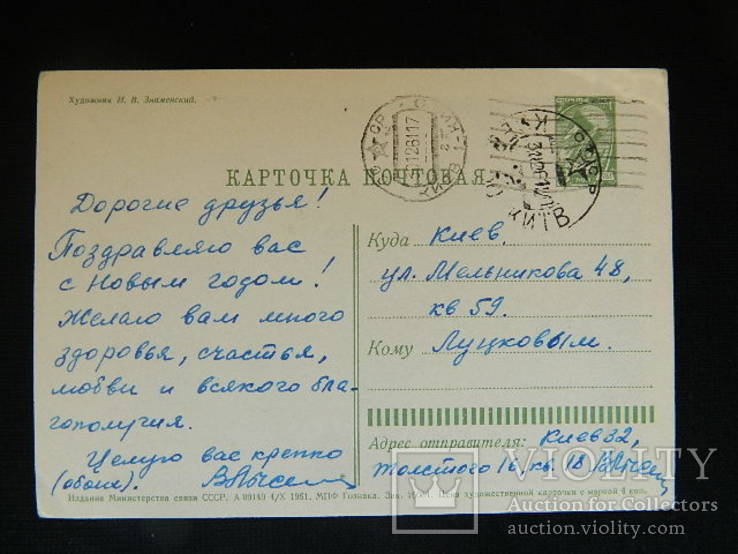 Художник И. В. Знаменский.
КАРТОЧКА ПОЧТОВАЯ
Дорогие друзья!
Поздравляю вас
с Новым годом!
Желаю вам много
здоровья, счастья,
любви и всякого бла-
гополучия.
Целую вас крепко
(обоих).
Куда Киев,
ул. Мельникова 48,
кв 59.
Кому Луцковым.
Адрес отправителя: Киев 32,
Толстого 16, кв. 18
Издание Министерства связи СССР. А 09149 4/X 1961. МПФ Гознака. Зак. Цена художественной карточки с маркой 4 коп.
КИЇВ
VIOLITY
Auction for Collectors
auction.violity.com